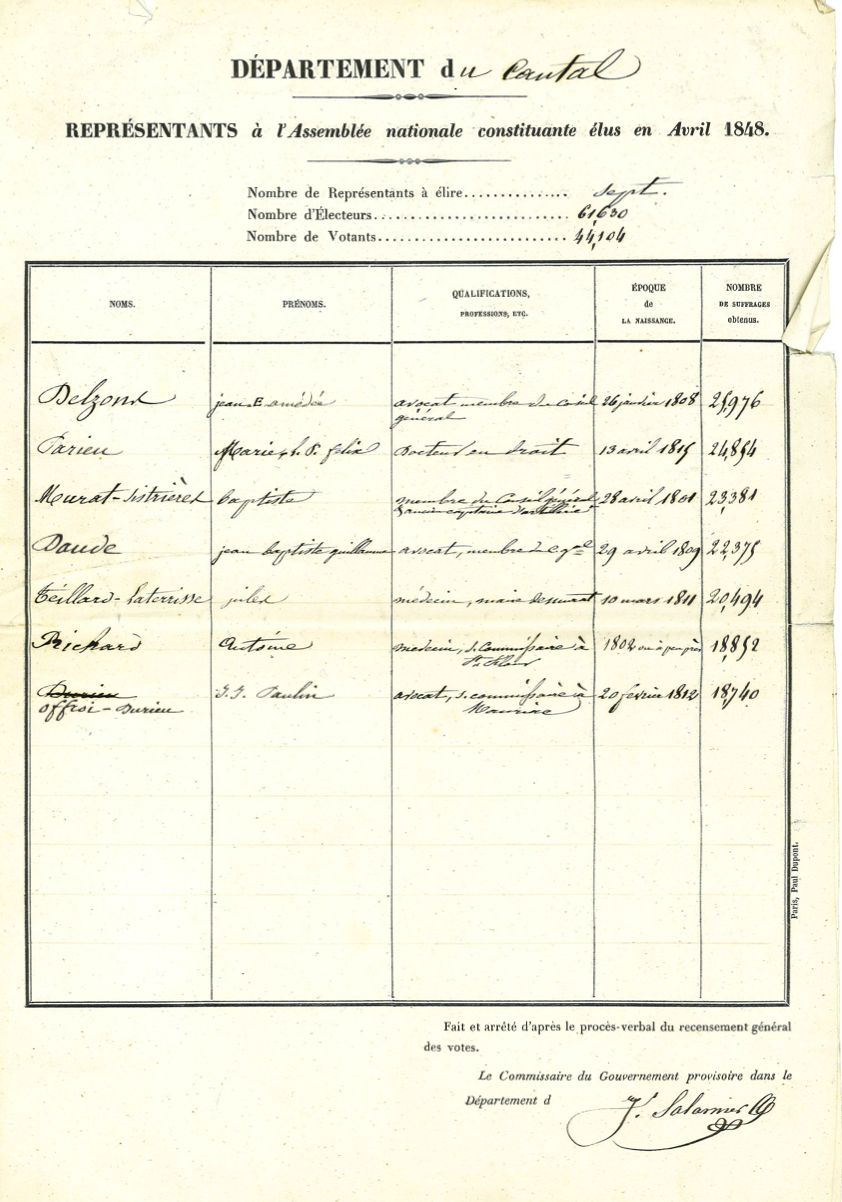 DÉPARTEMENT du Cantal
REPRÉSENTANTS à l'Assemblée nationale constituante élus en Avril 1848.
Nombre de Représentants à élire.............. sept.
Nombre d'Électeurs.......................... 61,630
Nombre de Votants.......................... 44,104
NOMS. PRÉNOMS. QUALIFICATIONS, PROFESSIONS, ETC. ÉPOQUE de LA NAISSANCE. NOMBRE DE SUFFRAGES obtenus.
Delzons jean E amédée avocat membre du Conseil 26 janvier 1808 25,976
général
Parieu Marie, L. P. felix Docteur en droit 13 avril 1815 24,854
Murat-Sistrières baptiste membre du Conseil général 28 avril 1801 23,381
& ancien capitaine d'artillerie
Daude jean baptiste guillaume avocat, membre de cgal 29 avril 1809 22,375
Teillard-Laterrisse jules médecin, maire de murat 10 mars 1811 20,494
Richard Antoine medecin, s. Commissaire à 1802 ou à peu près 18,852
St. Flour
Durieu J. J. Paulin avocat, s. commissaire à 20 fevrier 1812 18,740
offroi-Durieu Mauriac
Paris, Paul Dupont.
Fait et arrêté d'après le procès-verbal du recensement général
des votes.
Le Commissaire du Gouvernement provisoire dans le
Département d
J. Salarnier